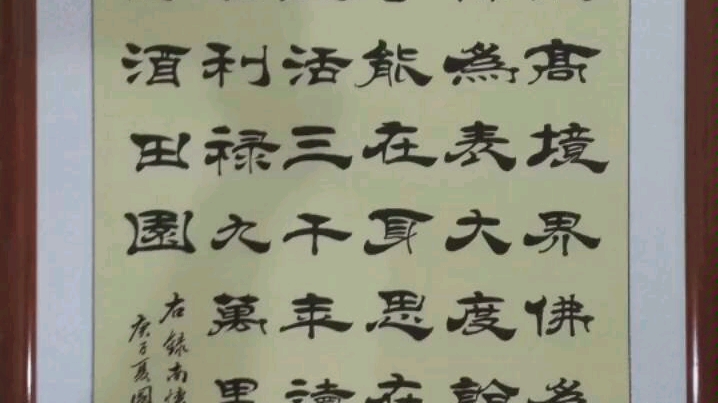 高境界佛為
為表大度
能在身思在
活三千年讀
利禄九萬里
酒田園
右録南懷
庚子夏國